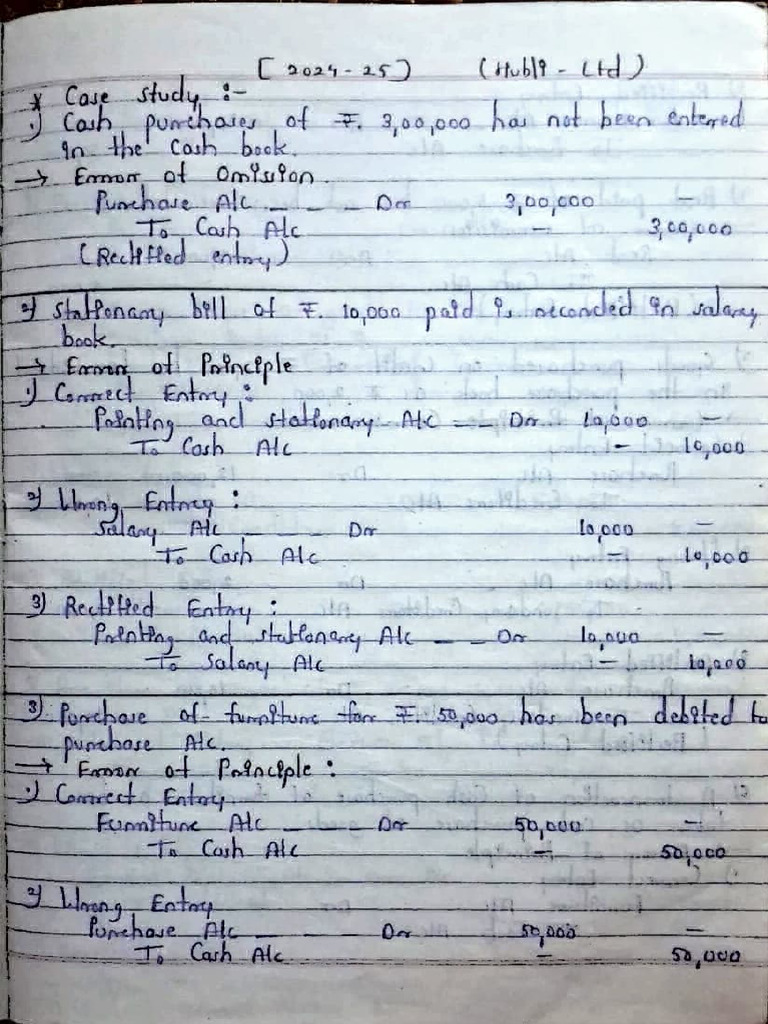 [ 2024-25 ] (Hubli - Ltd)
* Case study :-
1) Cash purchases of ₹. 3,00,000 has not been entered
in the Cash book.
→ Error of Omission.
Purchase A/c _ _ _ Dr 3,00,000 -
To Cash A/c - 3,00,000
(Rectified entry)
2) Stationary bill of ₹. 10,000 paid is recorded in salary
book.
→ Error of Principle
1) Correct Entry :
Printing and stationary A/c __ Dr 10,000 -
To Cash A/c - 10,000
2) Wrong Entry :
Salary A/c _ _ _ Dr 10,000 -
To Cash A/c - 10,000
3) Rectified Entry :
Printing and stationary A/c _ _ Dr 10,000 -
To Salary A/c - 10,000
3) Purchase of furniture for ₹. 50,000 has been debited to
purchase A/c.
→ Error of Principle :
1) Correct Entry
Furniture A/c _ _ _ Dr 50,000 -
To Cash A/c - 50,000
2) Wrong Entry
Purchase A/c _ _ _ Dr 50,000 -
To Cash A/c - 50,000